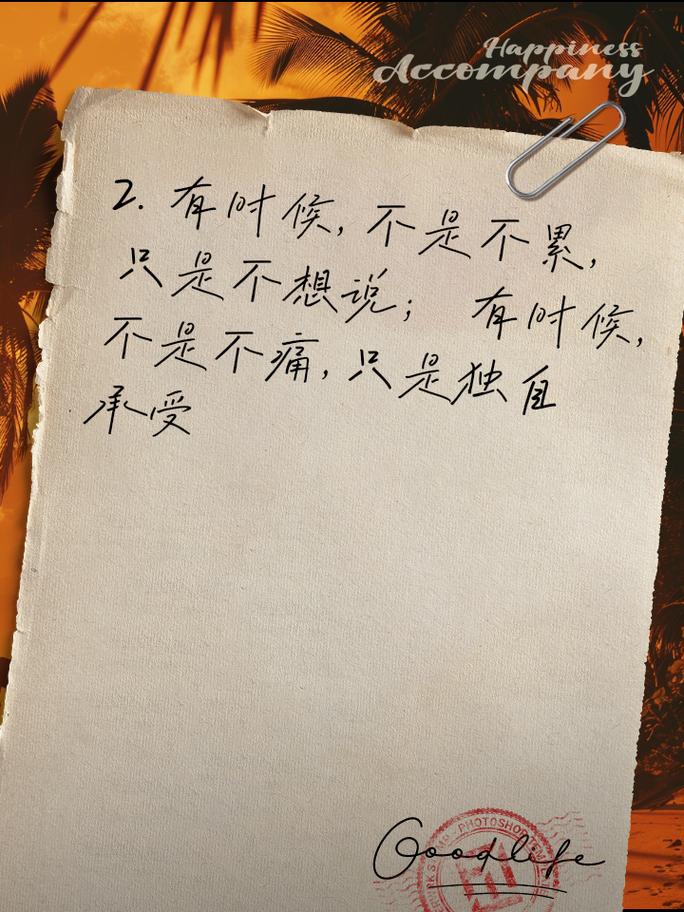 Happiness
Accompany
2. 有时候, 不是不累,
只是不想说; 有时候,
不是不痛, 只是独自
承受
Goodlife
PHOTOSHOP